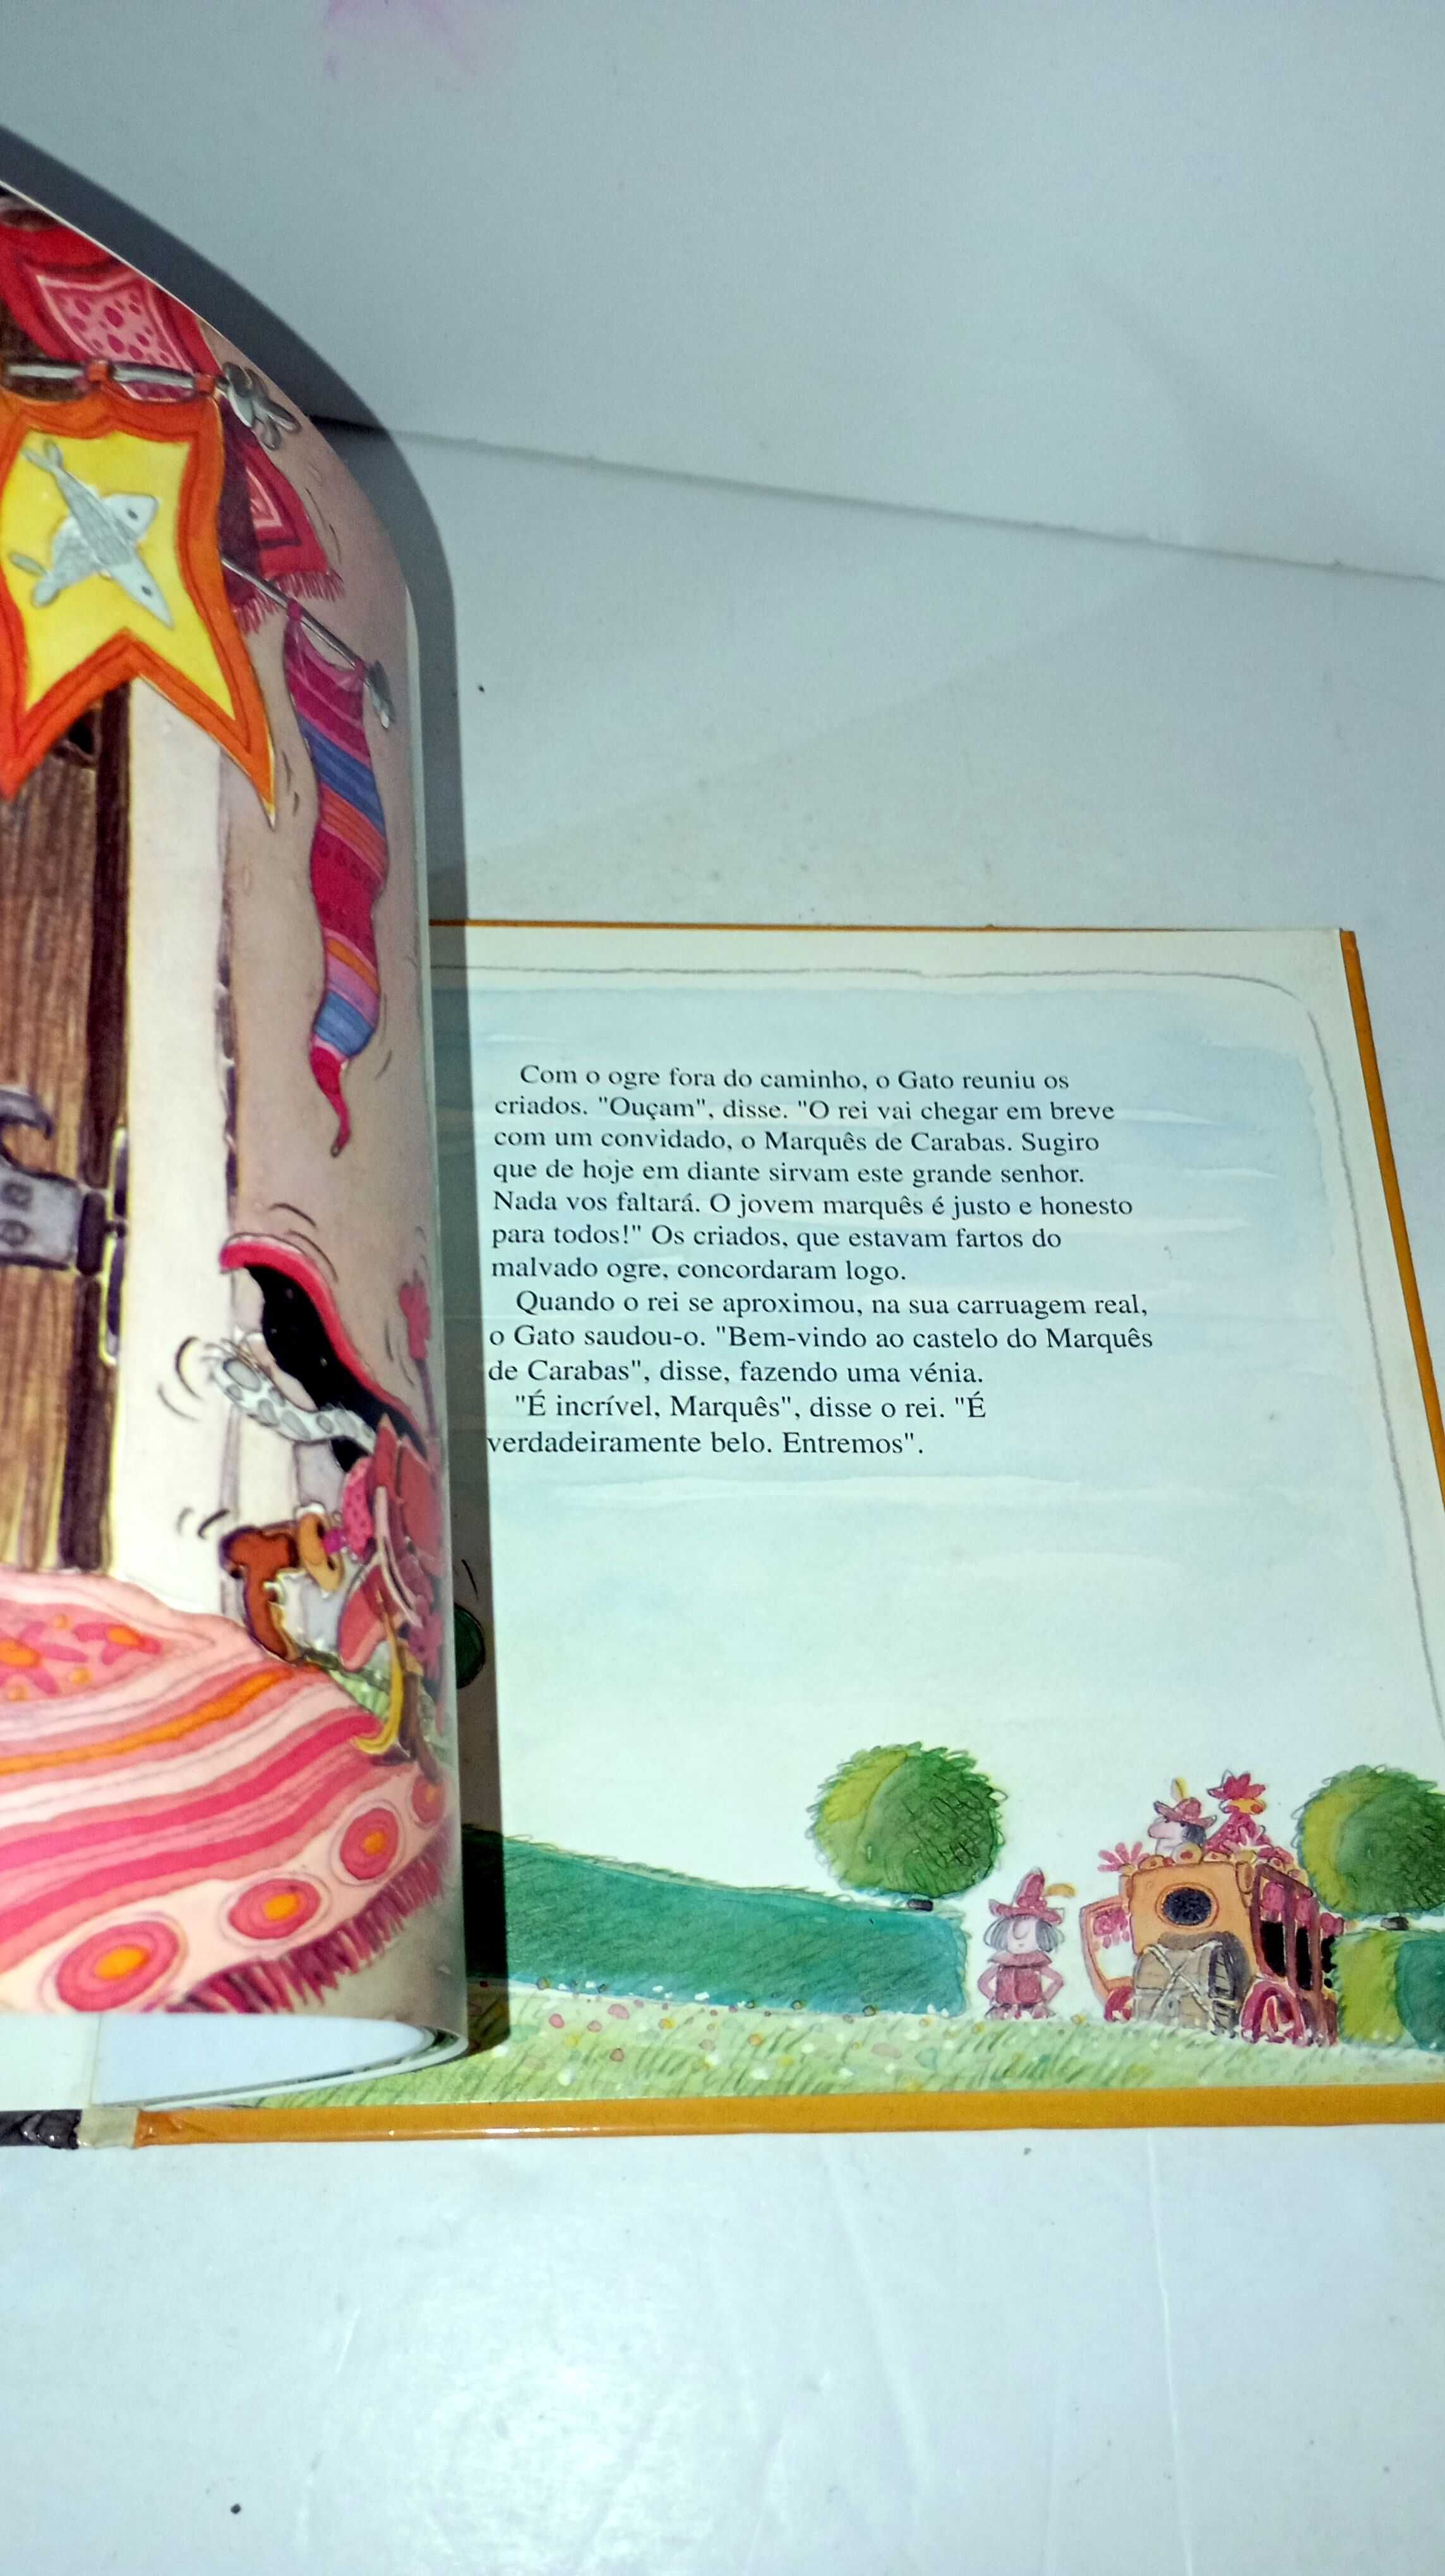 Com o ogre fora do caminho, o Gato reuniu os
criados. "Ouçam", disse. "O rei vai chegar em breve
com um convidado, o Marquês de Carabas. Sugiro
que de hoje em diante sirvam este grande senhor.
Nada vos faltará. O jovem marquês é justo e honesto
para todos!" Os criados, que estavam fartos do
malvado ogre, concordaram logo.
Quando o rei se aproximou, na sua carruagem real,
o Gato saudou-o. "Bem-vindo ao castelo do Marquês
de Carabas", disse, fazendo uma vénia.
"É incrível, Marquês", disse o rei. "É
verdadeiramente belo. Entremos".